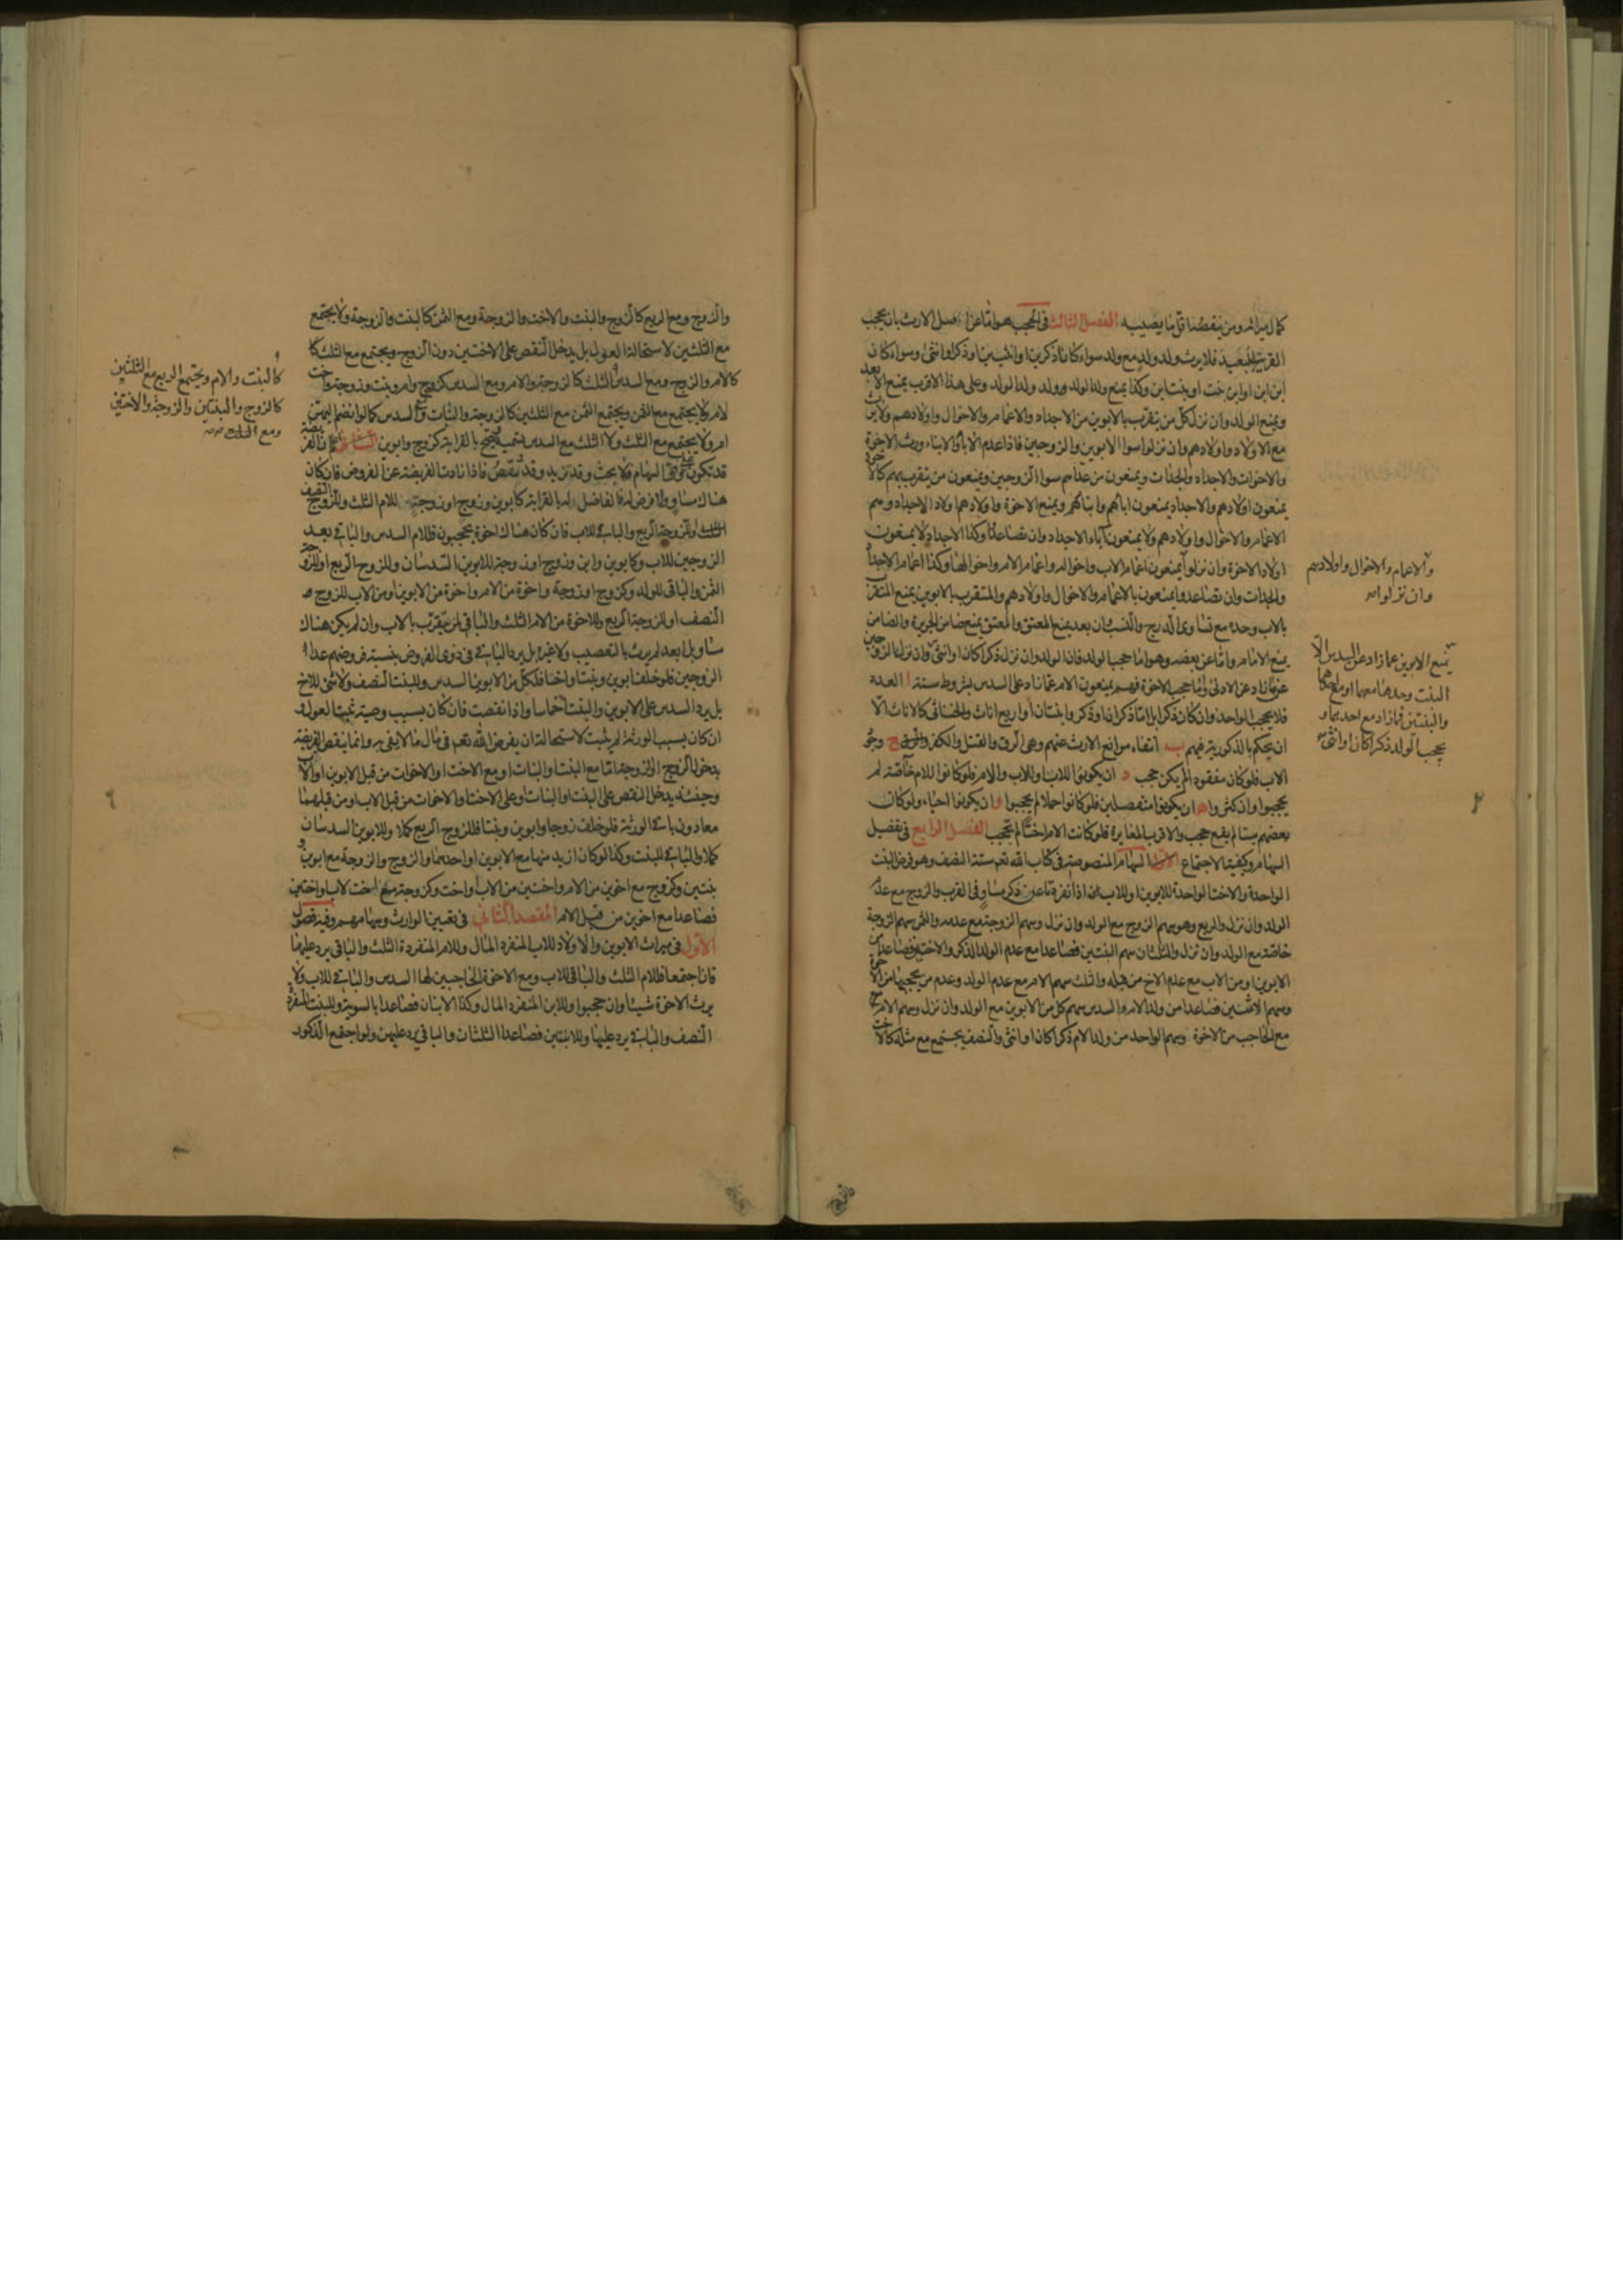 كمال ميراثه ومن ينقصه اقل ما يصيبه الفصل الثالث في الحجب وهو اما عن اصل الارث بان يحجب
القريب البعيد فلا يرث ولد ولد مع ولد سواء كانا ذكرين او انثيين او ذكرا وانثى وسواء كان
ابن ابن او ابن بنت او بنت ابن وكذا يمنع ولد الولد ولد ولد الولد وعلى هذا الاقرب يمنع الابعد
ويمنع الولد وان نزل كل من يتقرب بالابوين من الاجداد والاعمام والاخوال واولادهم ولا يرث
مع الاولاد واولادهم وان نزلوا سوا الابوين والزوجين فاذا عدم الآباء والابناء ورث الاخوة
والاخوات والاجداد والجدات ويمنعون من عداهم سوا الزوجين ويمنعون من يتقرب بهم كالاخوة
يمنعون اولادهم والاجداد يمنعون اباءهم وابناءهم ويمنع الاخوة واولادهم اولاد الاجداد وهم
الاعمام والاخوال واولادهم ولا يمنعون آباء الاجداد وان تصاعدوا وكذا الاجداد لا يمنعون
اولاد الاخوة وان نزلوا يمنعون اعمام الاب واخواله واعمام الام واخوالها وكذا اعمام الاجداد
والجدات وان تصاعدوا يمنعون بالاعمام والاخوال واولادهم والمتقرب بالابوين يمنع المتقرب
بالاب وحده مع تساوى الدرج والنسب وان بعد يمنع المعتق والمعتق يمنع ضامن الجريرة والضامن
يمنع الامام واما عن بعضه وهو اما حجب الولد فان الولد وان نزل ذكرا كان او انثى وان نزلوا الزوجين
عما زاد عن الادنى واما حجب الاخوة فهم يمنعون الام عما زاد على السدس بشروط ستة ا العدد
فلا يحجب الواحد وان كان ذكرا بل اما ذكران او ذكر وابنتان او اربع اناث والخناثى كالاناث الا
ان يحكم بالذكورية فيهم ب انتفاء موانع الارث عنهم وهي الرق والقتل والكفر ج وجود
الاب فلو كان مفقودا لم يكن حجب د ان يكونوا للاب او للاب والام فلو كانوا للام خاصة لم
يحجبوا وان كثروا ه ان يكونوا منفصلين فلو كانوا حملا لم يحجبوا و ان يكونوا احياء ولو كان
بعضهم ميتا لم يقع حجب والاقرب المغايرة فلو كانت الام اختا لم تحجب الفصل الرابع في تفصيل
السهام وكيفية الاجتماع الاول السهام المنصوصة في كتاب الله تعم ستة النصف وهو فرض البنت
الواحدة والاخت الواحدة للابوين او للاب اذا انفردتا عن ذكر مساو في القرب والزوج مع عدم
الولد وان نزل والربع وهو سهم الزوج مع الولد وان نزل وسهم الزوجة مع عدمه والثمن سهم الزوجة
خاصة مع الولد وان نزل والثلثان سهم البنتين فصاعدا مع عدم الولد الذكر والاختين فصاعدا من
الابوين او من الاب مع عدم الاخ من قبله والثلث سهم الام مع عدم الولد وعدم من يحجبها من الاخوة
وسهم الاثنين فصاعدا من ولد الام والسدس سهم كل من الابوين مع الولد وان نزل وسهم الام
مع الحاجب من الاخوة وسهم الواحد من ولد الام ذكرا كان او انثى والنصف يجتمع مع مثله كالاخت
والاعمام والاخوال واولادهم
وان نزلوا
يمنع الابوين عما زاد عن السدس الا
البنت وحدها معهما او مع احدهما
والبنتين فما زاد مع احدهما و
يحجب الولد ذكرا كان او انثى
والزوج ومع الربع كالزوج والبنت والاخت والزوجة ومع الثمن كالبنت والزوجة ولا يجتمع
مع الثلثين لاستحالة العول بل يدخل النقص على الاختين دون الزوج ويجتمع مع الثلث كا
كالام والزوج ومع السدس والثلث كالزوجة والام ومع السدس كزوج وام وبنت وزوجة واخت
لام ولا يجتمع مع الثمن ويجتمع الثمن مع الثلثين كالزوجة والبنات ومع السدس كما لو انضم اليهن
ام ولا يجتمع مع الثلث ولا الثلث مع السدس تسمية ويصح بالقرابة كزوج وابوين الثاني اعلم ان الفريضة
قد تكون وفق السهام فلا بحث وقد تزيد وقد تنقص فاذا زادت الفريضة عن الفروض فان كان
هناك مساو ولا فرض له فالفاضل له بالقرابة كابوين وزوج او زوجة للام الثلث وللزوج النصف
وللزوجة الربع والباقي للاب فان كان هناك اخوة يحجبون فللام السدس والباقي بعد
الزوجين للاب وكابوين وابن وزوج او زوجة للابوين السدسان وللزوج الربع او للزوجة
الثمن والباقي للولد وكزوج او زوجة واخوة من الام واخوة من الابوين او من الاب للزوج
النصف او للزوجة الربع وللاخوة من الام الثلث والباقي لمن يتقرب بالاب وان لم يكن هناك
مساو بل ابعد لم يرث بالتعصيب ولا غيره بل يرد الباقي في ذوى الفروض بنسبة فروضهم عدا
الزوجين فلو خلف ابوين وبنتا واخا فلكل من الابوين السدس وللبنت النصف ولا شئ للاخ
بل يرد السدس على الابوين والبنت اخماسا واذا نقصت فان كان بسبب وصية ثبت العول و
ان كان بسبب الورثة لم يثبت لاستحالة ان يفرض الله تعم في مال ما لا يفي به وانما ينقص الفريضة
بدخول الزوج او الزوجة اما مع البنت والبنات او مع الاخت او الاخوات من قبل الابوين او الاب
وحينئذ يدخل النقص على البنت او البنات وعلى الاخت او الاخوات من قبل الاب او من قبلهما
معا دون باقي الورثة فلو خلف زوجا وابوين وبنتا فللزوج الربع كملا وللابوين السدسان
كملا والباقي للبنت وكذا لو كان ازيد منها مع الابوين او احدهما والزوج والزوجة مع ابوين و
بنتين وكزوج مع اخوين من الام واختين من الاب او اخت وكزوجة مع اخت لاب او اختين
فصاعدا مع اخوين من قبل الام المقصد الثاني في تعيين الوارث وسهامهم وفيه فصول
الاول في ميراث الابوين والاولاد للاب المنفرد المال وللام المنفردة الثلث والباقي يرد عليها
فان اجتمعا فللام الثلث والباقي للاب ومع الاخوة الحاجبين لها السدس والباقي للاب ولا
يرث الاخوة شيئا وان حجبوا وللابن المنفرد المال وكذا الابنان فصاعدا بالسوية وللبنت المنفردة
النصف والباقي يرد عليها وللابنتين فصاعدا الثلثان والباقي يرد عليهن ولو اجتمع الذكور
كالبنت والام ويجتمع الربع مع الثلثين
كالزوج والبنتين والزوجة والاختين
ومع الثلث